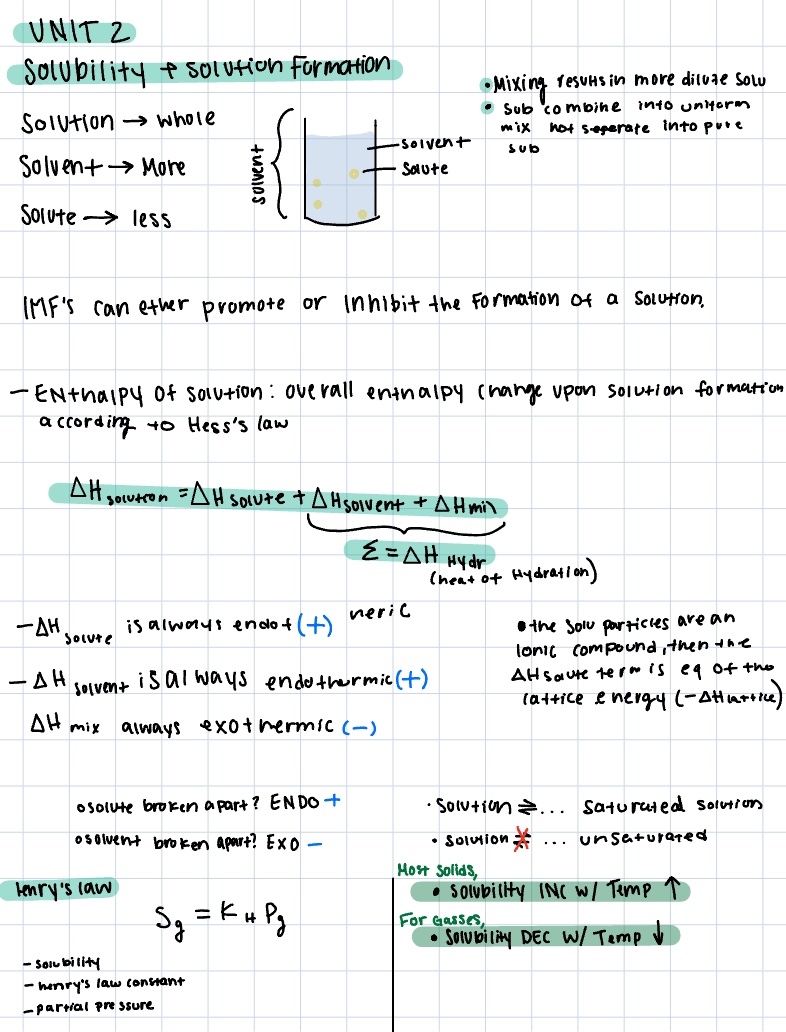 UNIT 2
Solubility + solution Formation
• Mixing results in more dilute solu
• sub combine into uniform
mix not seperate into pure
sub
Solution → whole
Solvent → More
Solute → less
solvent
solvent
Solute
IMF's can ether promote or inhibit the formation of a solution.
– Enthalpy of solution: overall enthalpy change upon solution formation
according to Hess's law
ΔH solution = ΔH solute + ΔH solvent + ΔH mix
Σ = ΔH Hydr
(heat of Hydration)
– ΔH solute is always endot (+) neric
– ΔH solvent is always endothermic (+)
ΔH mix always exothermic (–)
• the solu particles are an
ionic compound, then the
ΔH solute term is eq of the
lattice energy (-ΔH lattice)
o solute broken apart? ENDO +
o solvent broken apart? EXO –
• Solution ⇌ ... saturated solution
• solution ⇌ ... unsaturated
Henry's law
Sg = KH Pg
– solubility
– henry's law constant
– partial pressure
Most solids,
• solubility INC w/ Temp ↑
For Gasses,
• Solubility DEC w/ Temp ↓